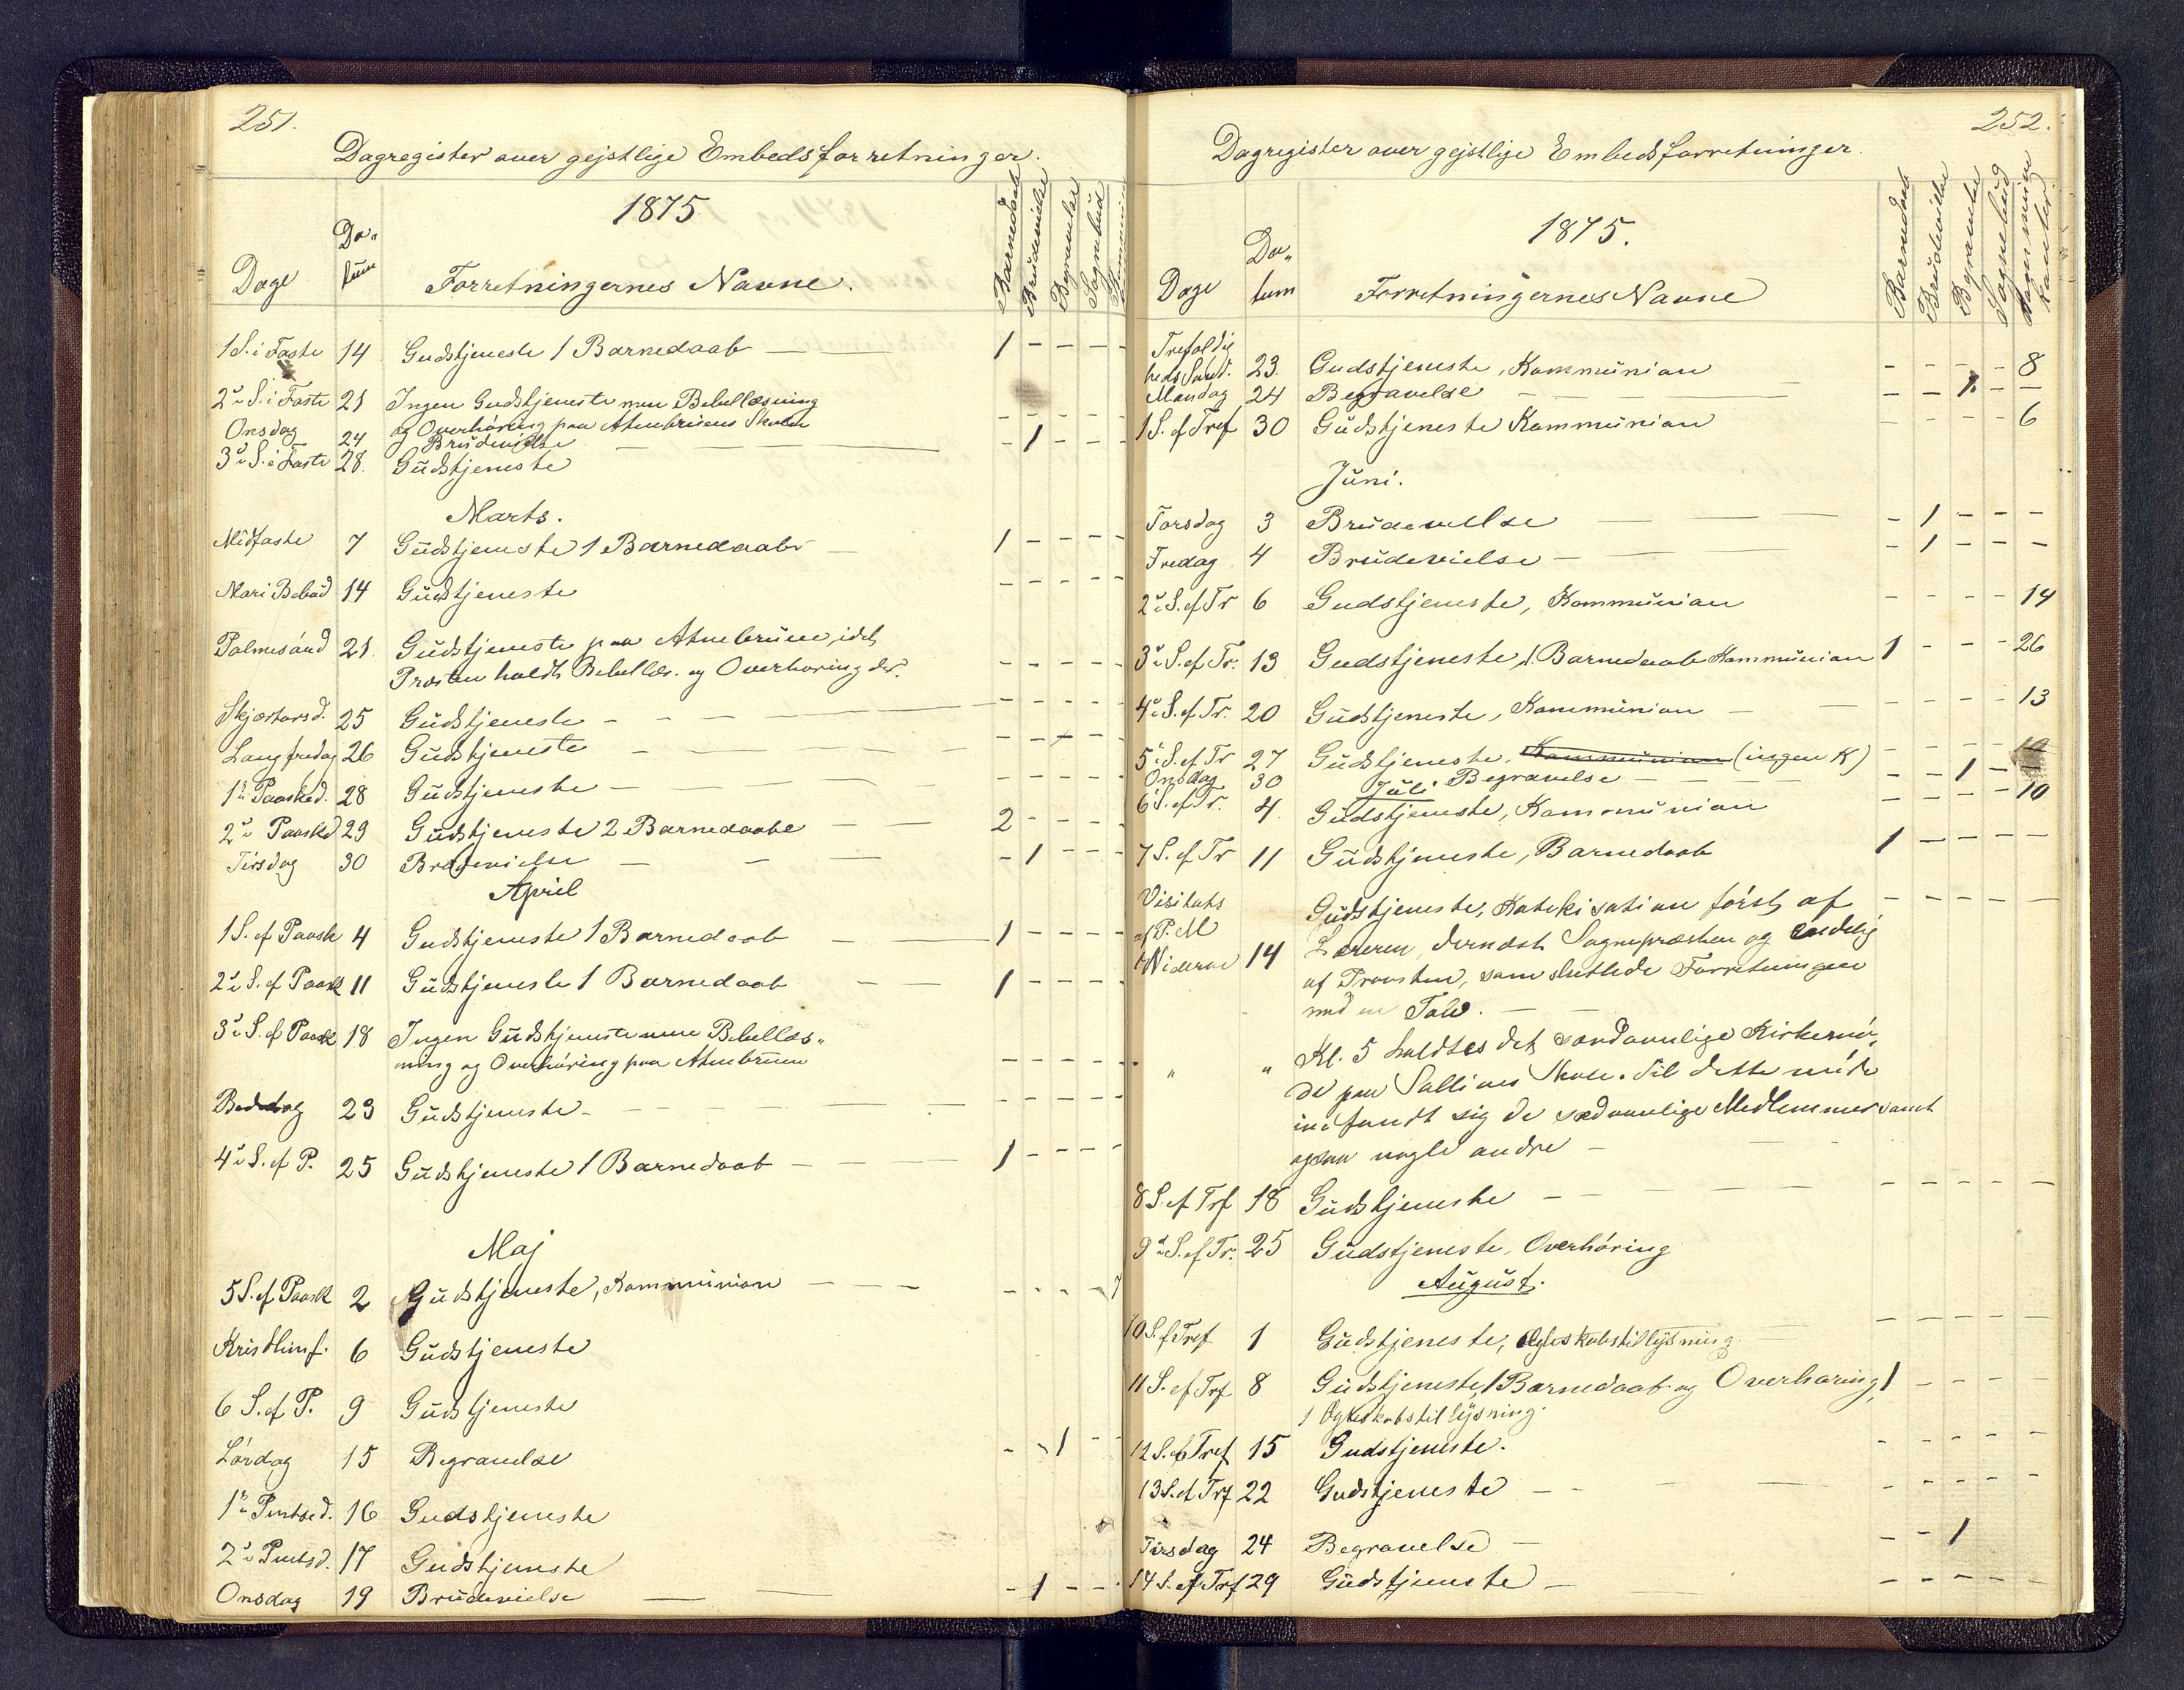 251.
Dagregister over gejstlige Embedsforretninger.
1875
Dage
Da-
tum
Forretningernes Navne.
Barnedaab
Brudevielse
Begravelse
Sognebud
1 S. i Faste 14 Gudstjeneste 1 Barnedaab — — 1 - - - -
2n S. i Faste 21 Ingen Gudstjeneste men Bibellæsning
og Overhøring paa Atnebruens Skole - - - - -
Onsdag 24 Brudevielse — — - 1 - - -
3n S. i Faste 28. Gudstjeneste
Marts.
Midfaste 7 Gudstjeneste 1 Barnedaab — 1 - - - -
Mari Bebud 14 Gudstjeneste - - - - -
Palmesönd 21. Gudstjeneste paa Atnebruen, idet
Præsten holdt Bibellæs. og Overhøring der. - - - - -
Skjærtorsd. 25 Gudstjeneste - - - - -
Langfredag 26 Gudstjeneste - - - - -
1n Paasked. 28 Gudstjeneste - - - - -
2n Paasked 29 Gudstjeneste 2 Barnedaabe — — 2 - - - -
Tirsdag 30 Brudevielse — — — - 1 - - -
April
1 S. ef Paask 4 Gudstjeneste 1 Barnedaab — — 1 - - - -
2n S. ef Paask 11 Gudstjeneste 1 Barnedaab — — 1 - - - -
3n S. ef Paask 18 Ingen Gudstjeneste men Bibellæs-
ning og Overhøring paa Atnebruen - - - - -
Bededag 23 Gudstjeneste - - - - -
4n S. ef P. 25 Gudstjeneste 1 Barnedaab — — 1 - - - -
Maj
5 S. ef Paask 2 Gudstjeneste, Kommunion — — - - - - 7
Krist Himf. 6 Gudstjeneste
6 S. ef P. 9 Gudstjeneste
Lördag 15 Begravelse - - 1 - -
1n Pintsed. 16 Gudstjeneste
2n Pintsd. 17 Gudstjeneste
Onsdag 19 Brudevielse — — - 1 - - -
252.
Dagregister over gejstlige Embedsforretninger.
1875.
Dage
Da-
tum
Forretningernes Navne
Barnedaab
Brudevielse
Begravelse
Sognebud
Kommuni
kanter
Trefoldig
heds Sönd. 23. Gudstjeneste, Kommunion - - - - 8
Mandag 24 Begravelse — — - - 1. - -
1 S. ef Tref 30 Gudstjeneste Kommunion - - - - 6
Juni.
Torsdag 3 Brudevielse — — - 1 - - -
Fredag 4 Brudevielse — — - 1 - - -
2n S. ef Tr 6 Gudstjeneste, Kommunion - - - - 14
3n S. ef Tr. 13 Gudstjeneste, 1. Barnedaab Kommunion 1 - - - 26
4n S. ef Tr. 20 Gudstjeneste, Kommunion — - - - - 13
5n S. ef Tr 27 Gudstjeneste, Kommunion (ingen K) - - - -
Onsdag 30 Begravelse — — - - 1 - -
Juli
6 S. ef Tr. 4 Gudstjeneste, Kommunion - - - - 10
7 S. ef Tr 11 Gudstjeneste, Barnedaab 1 - - - -
Visitats Gudstjeneste, Katekisation först af - - - - -
af P. M Læreren, dernæst Sognepræsten og endelig
14 af Provsten, som sluttede Forretningen
med en Tale. —
" " Kl. 5 holdtes det sædvanlige Kirkemö-
de paa Sollines Skole. Til dette möde
indfandt sig de sædvanlige Medlemmer samt
ogsaa nogle andre —
8 S. ef Trf 18 Gudstjeneste — — - - - - -
9n S. ef Tr. 25 Gudstjeneste, Overhöring
August.
10 S. ef Tref 1 Gudstjeneste, Ægteskabstillysning - - - - -
11 S. ef Trf 8 Gudstjeneste, 1 Barnedaab og Overhøring, 1 - - - -
1 Ægteskabstillysning.
12 S. ef Tref 15 Gudstjeneste. - - - - -
13 S. ef Trf 22 Gudstjeneste — - - - - -
Tirsdag 24 Begravelse — - - 1
14 S. ef Trf 29 Gudstjeneste — - - - - -